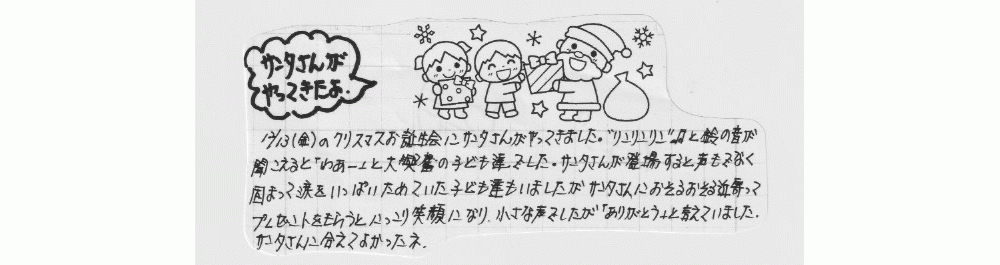 サンタさんが
やってきたよ.
12/13(金)のクリスマスお誕生会にサンタさんがやってきました。"リンリンリン"♫と鈴の音が
聞こえると「わあー」と大興奮の子ども達でした。サンタさんが登場すると声もでなく
固まって涙をいっぱいためていた子ども達もいましたがサンタさんにおそるおそる近寄って
プレゼントをもらうとにっこり笑顔になり、小さな声でしたが「ありがとう」と言えていました.
サンタさんに会えてよかったネ.